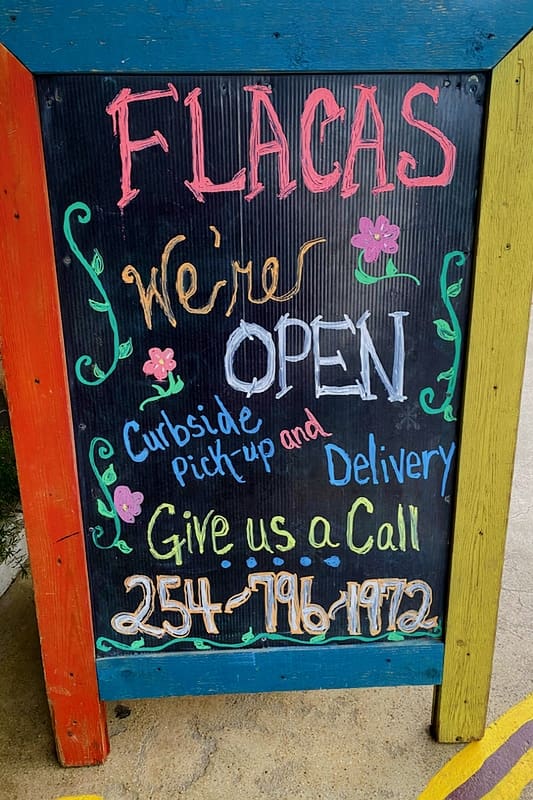 FLACAS
We're
OPEN
Curbside
Pick-up and
Delivery
Give us a Call
254-796-1972